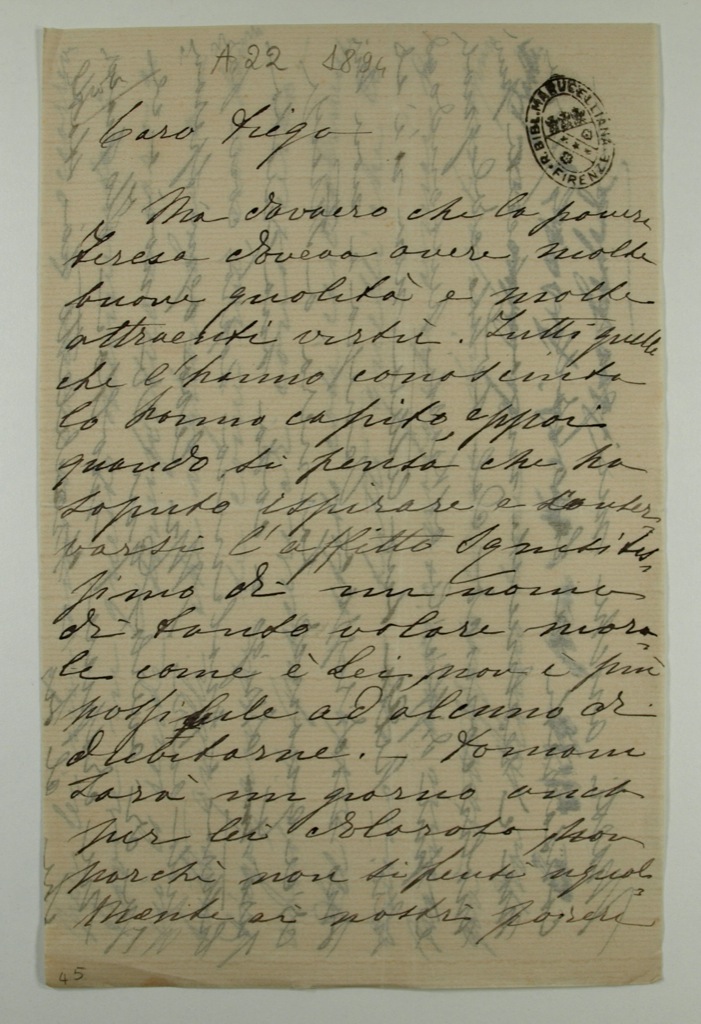 A 22 1894
R. BIBL. MARUCELLIANA FIRENZE
Caro Diego
Ma davvero che la povera
Teresa doveva avere molte
buone qualità e molte
attraenti virtù. Tutti quelli
che l'hanno conosciuta
lo hanno capito, eppoi
quando si pensa che ha
saputo ispirare e conser=
varsi l'affetto
simo di un uomo
di tanto valore mora=
le come è Lei, non è più
possibile ad alcuno di
dubitarne. — Domani
sarà un giorno anch
per lei doloroso, non
perchè non si pensi ugual=
mente ai nostri poveri
45